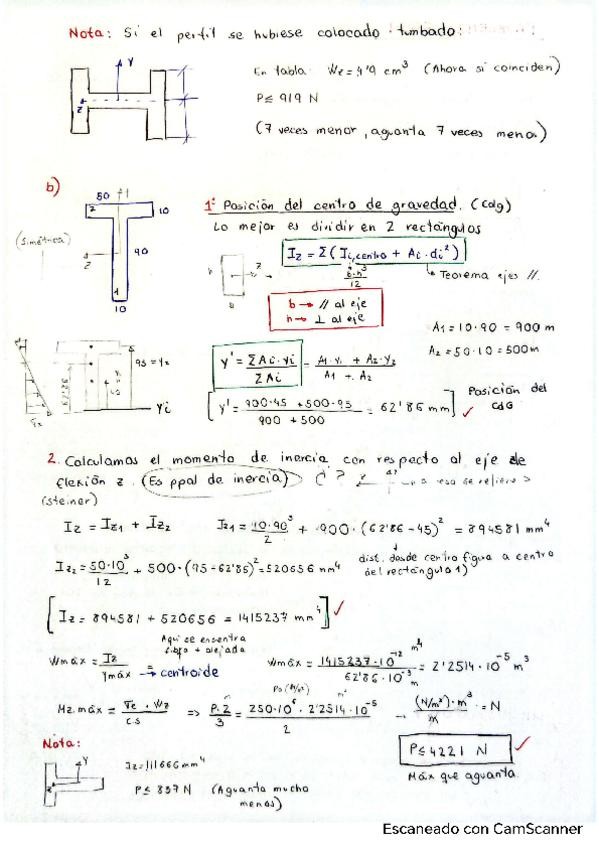 Nota: Si el perfil se hubiese colocado tumbado:
Y
z
En tabla: Wz = 4'9 cm³ (Ahora si coinciden)
P ≤ 919 N
(7 veces menor, aguanta 7 veces menos)
b)
50
2
10
(Simétrica)
90
z
1
10
1º Posición del centro de gravedad. (Cdg)
Lo mejor es dividir en 2 rectángulos
Iz = Σ(Ii,centro + Ai · di²)
b·h³
12
Teorema ejes //.
b → // al eje
h → ⊥ al eje
A1 = 10·90 = 900 m
A2 = 50·10 = 500m
y' = ΣAi·yi / ΣAi = A1·y1 + A2·y2 / A1 + A2
95 = Y2
Yi
[y' = 900·45 + 500·95 / 900 + 500 = 62'86 mm] ✓
Posición del CdG
2. Calculamos el momento de inercia con respecto al eje de
flexión z. (Es ppal de inercia) ¿?
(steiner)
Iz = Iz1 + Iz2
Iz1 = 10·90³ / 2 + 900·(62'86-45)² = 894581 mm⁴
Iz2 = 50·10³ / 12 + 500·(95-62'86)² = 520656 mm⁴
dist. desde centro figua a centro
del rectángulo 1)
[Iz = 894581 + 520656 = 1415237 mm⁴] ✓
Aqui se encentra
fibra + alejada
Wmáx = Iz / Ymáx → centroide
Wmáx = 1415237·10⁻¹² m⁴ / 62'86·10⁻³ m = 2'2514·10⁻⁵ m³
Mz.máx = σe · Wz / c.s ⇒ P·2 / 3 = 250·10⁶ · 2'2514·10⁻⁵ / 2 → (N/m²)·m³ / m = N
Nota:
Y
Iz = 111666 mm⁴
P ≤ 837 N (Aguanta mucho
menos)
P ≤ 4221 N ✓
Máx que aguanta.
Escaneado con CamScanner